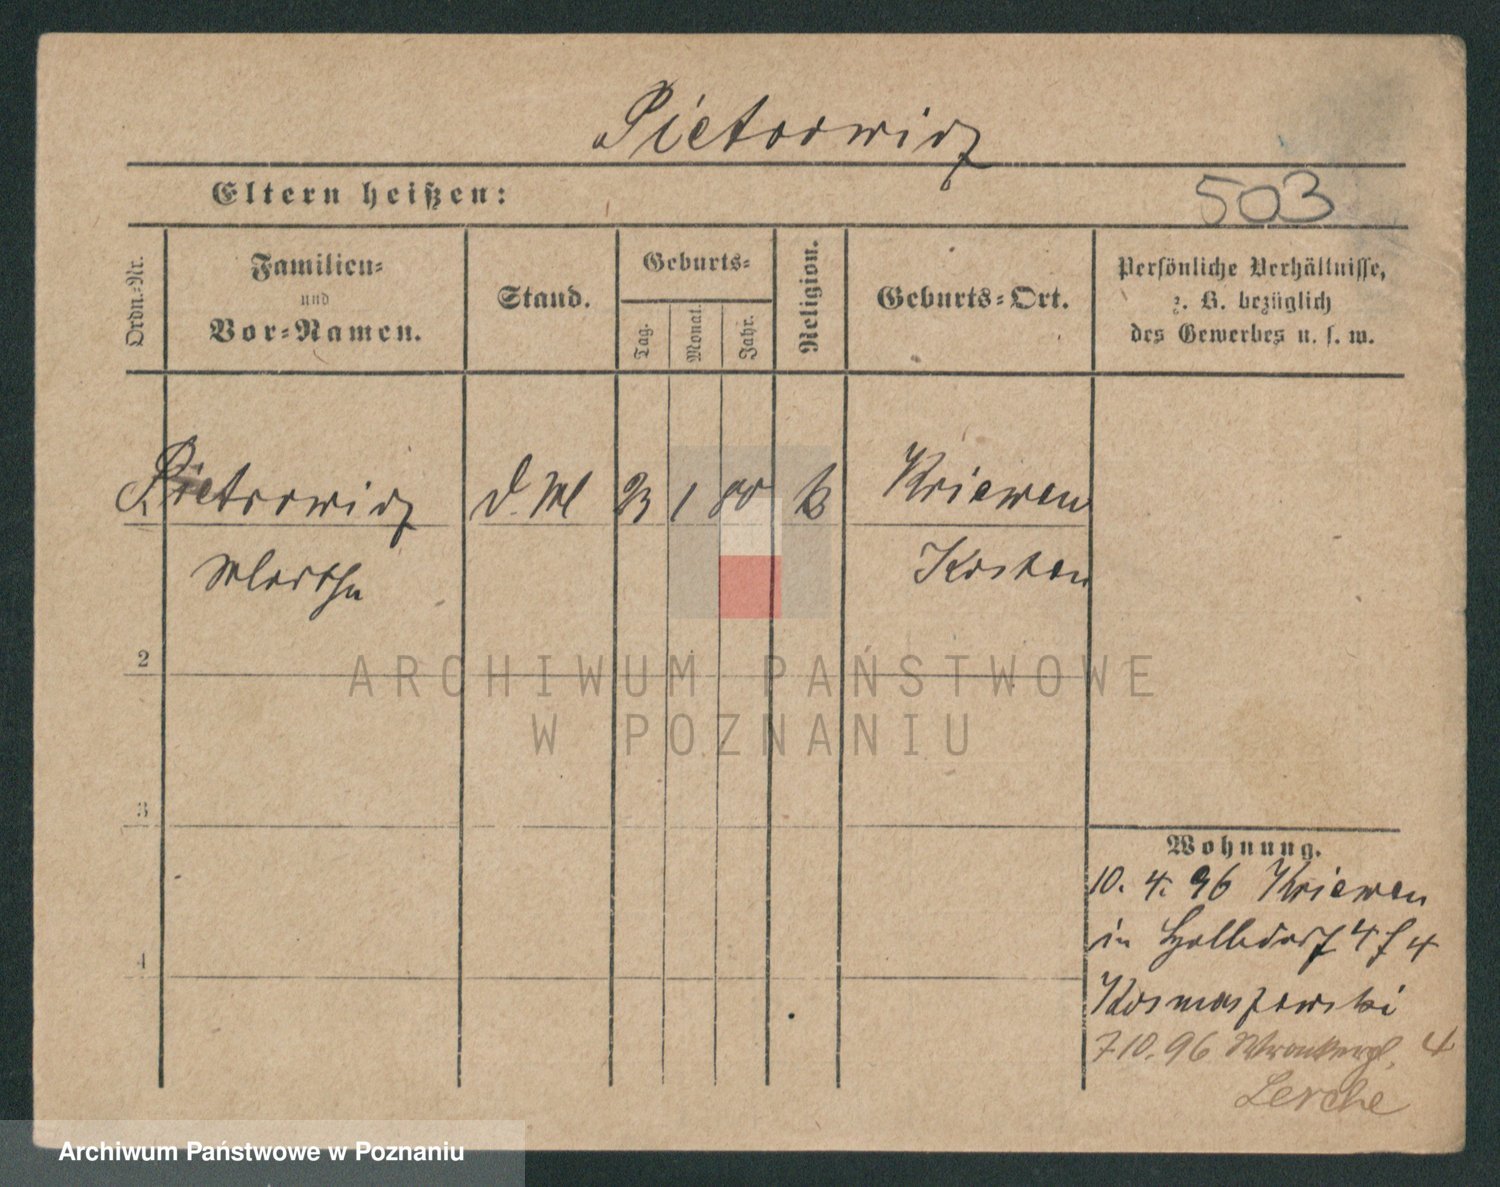 Pietrowicz
Eltern heißen:
503
Ordn.-Nr.
Familien-
und
Vor-Namen.
Stand.
Geburts-
Tag.
Monat.
Jahr.
Religion.
Geburts-Ort.
Persönliche Verhältnisse,
z. B. bezüglich
des Gewerbes u. s. w.
Pietrowicz
Martha
d. M
23
1
80
k
Kriewen
Kosten
2
3
4
Wohnung.
10. 4. 96 Kriewen
in Halbdorf 4
Kosmaszewski
7 10. 96 Wronkerpl. 4
Lerche
ARCHIWUM PAŃSTWOWE
W POZNANIU
Archiwum Państwowe w Poznaniu